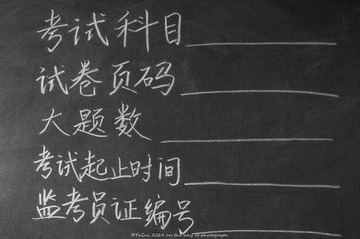 考试科目
试卷页码
大题数
考试起止时间
监考员证编号
©YeGou 2024 on the way of photograph